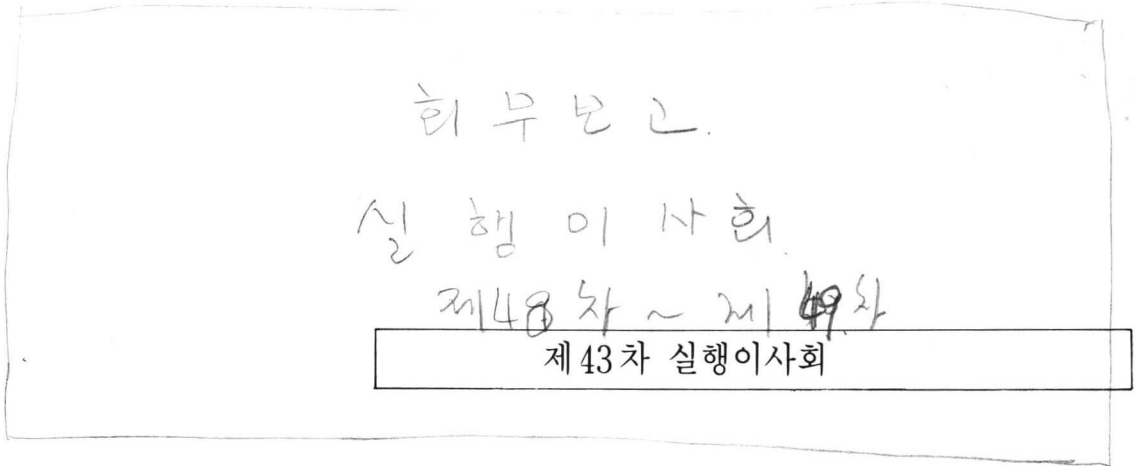 회무보고.
실행이사회.
제 차 ~ 제49차
제43차 실행이사회